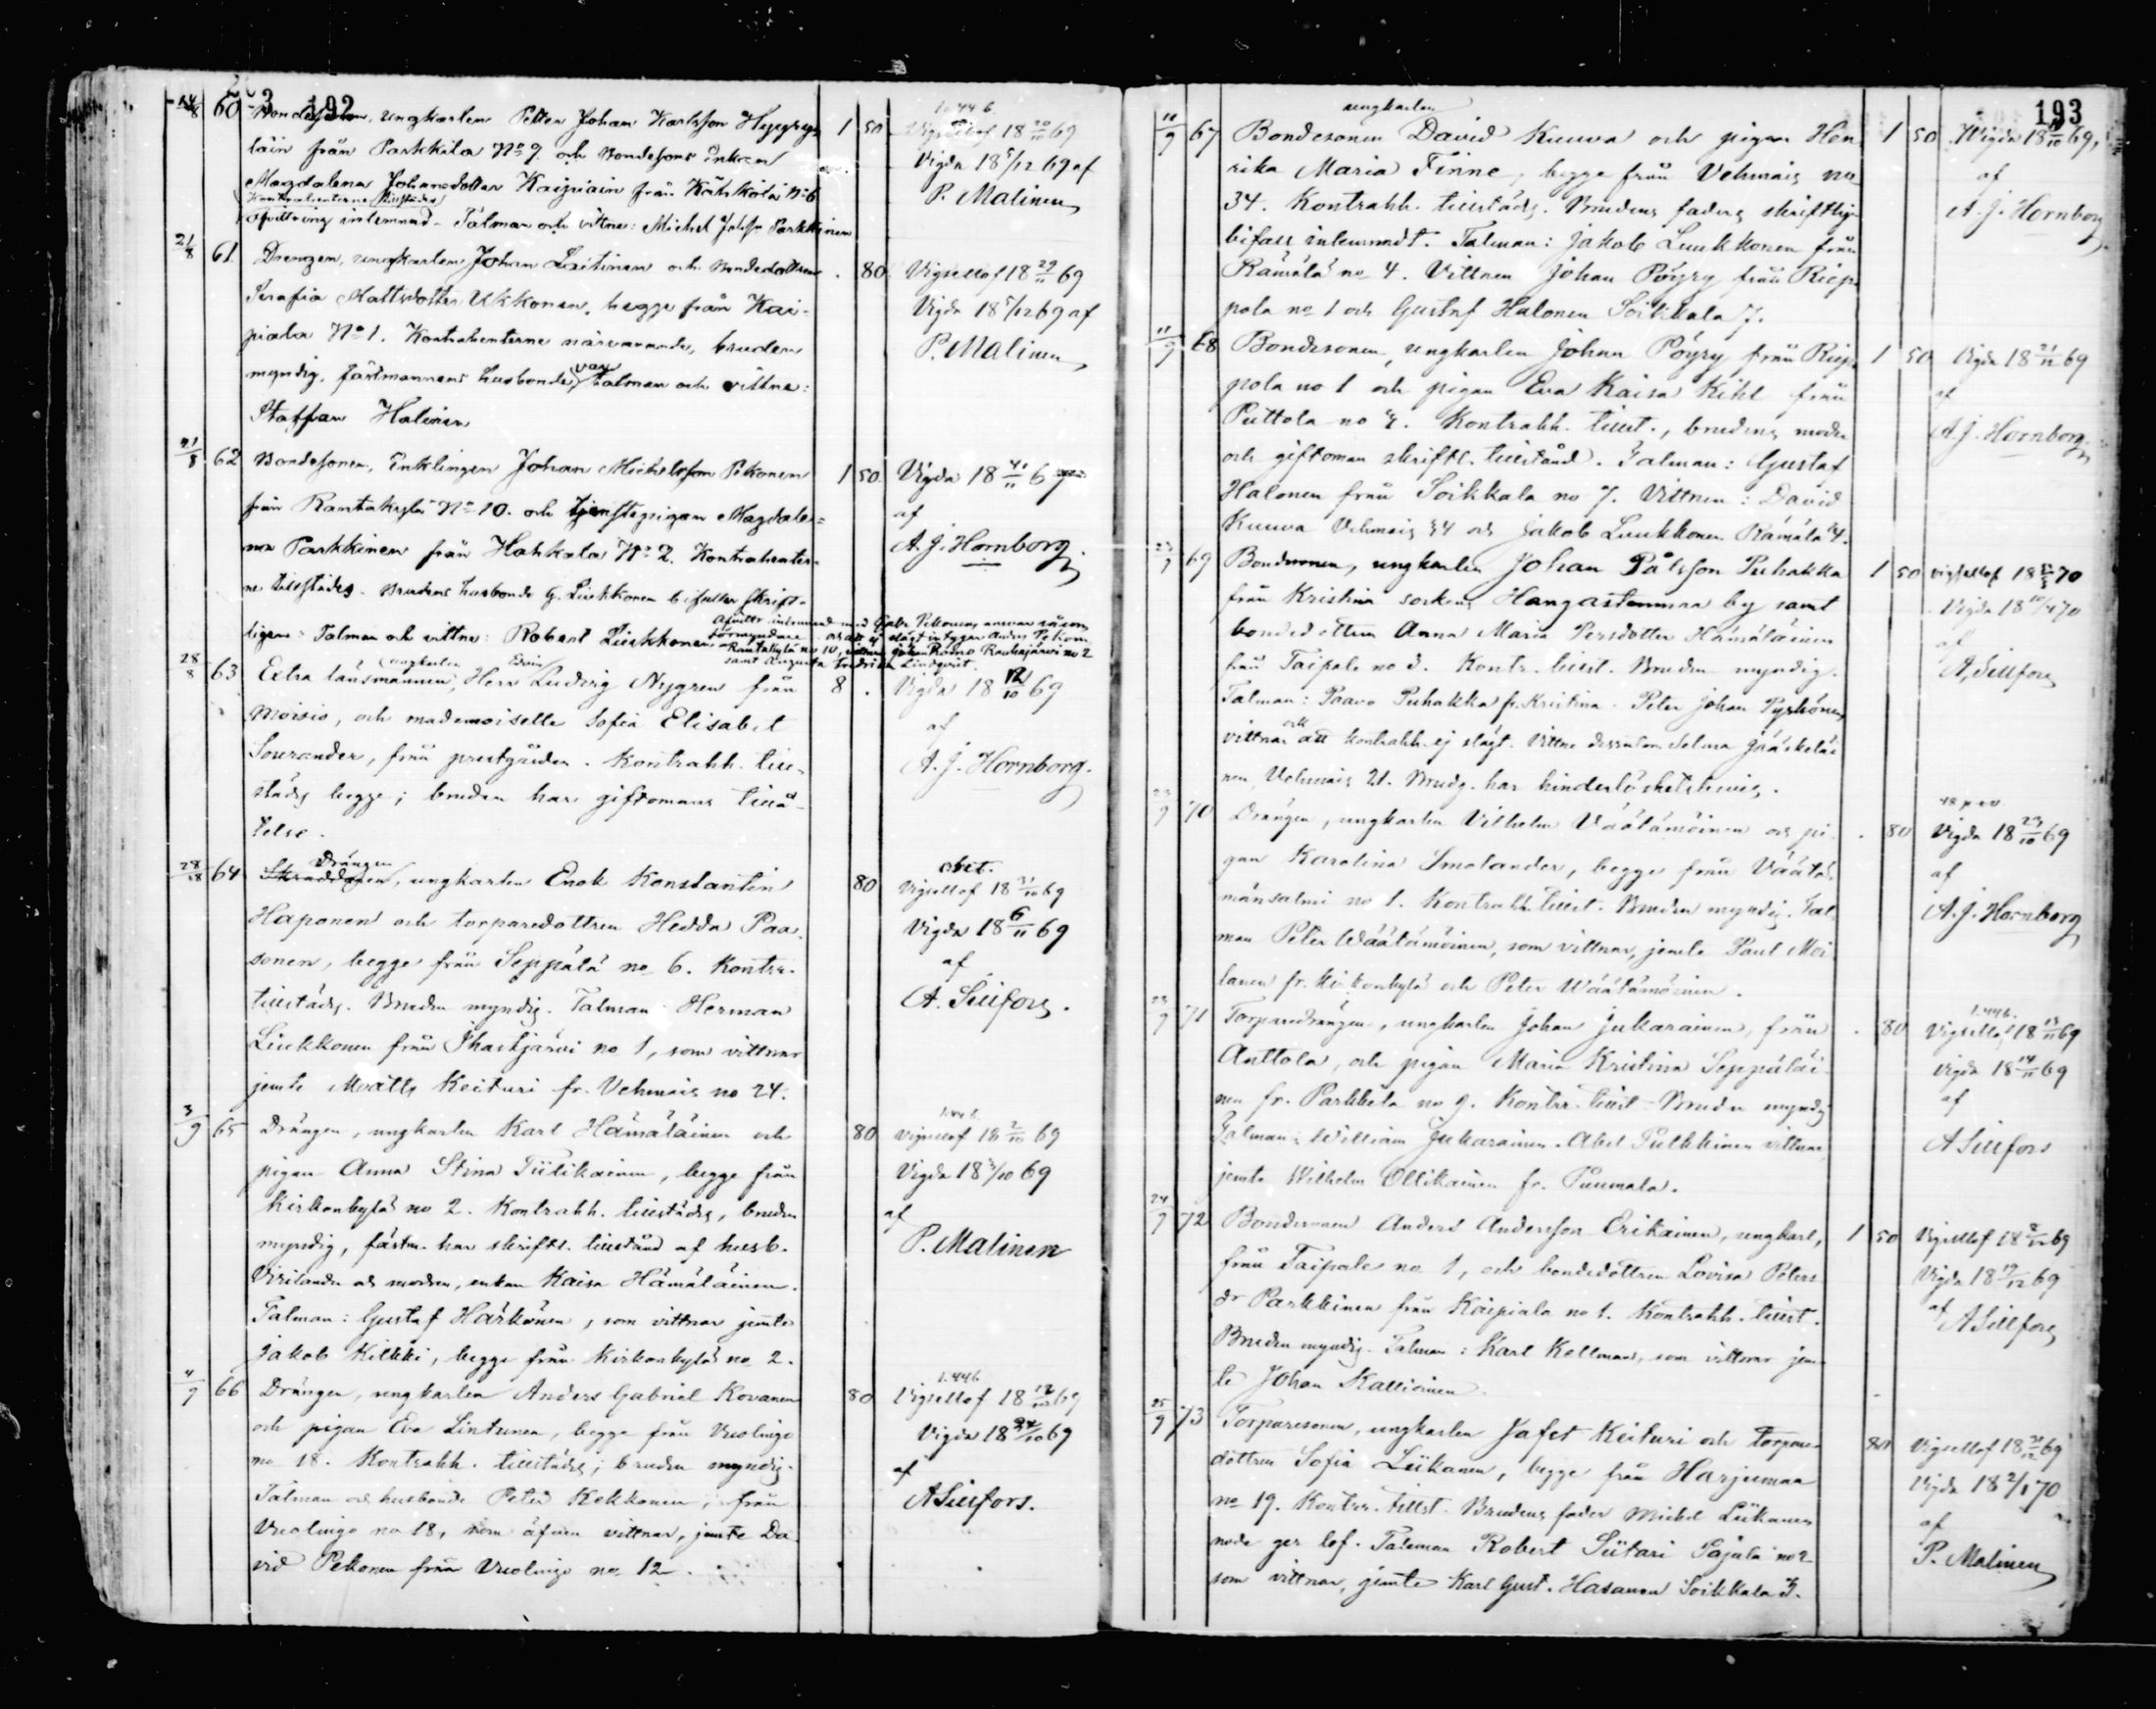 192
14/8 60 Bondesonen, ungkarlen Petter Johan Karlsson Hyyryläin från Parkkila No 9. och Bondesons Enkan 1 50 Vigsellof 18 20/11 69
Magdalena Johansdotter Kaipiain från Kähkölä No 6 Vigda 18 5/12 69 af
Kontrahenterne tillstädes
Afvittring inlemnad. Talman och vittne: Michel Johsson Parkkinen P. Malinen
21/8 61 Drengen, ungkarlen Johan Laitinen och Bondedottren . 80 Vigsellof 18 29/11 69
Serafia Mattsdotter Ukkonen, begge från Kai- Vigda 18 5/12 69 af
piala No 1. Kontrahenterne närvarande, bruden P. Malinen
myndig, fästmannens husbonde, var talman och vittne:
Staffan Halinen
21/8 62 Bondesonen, Enklingen Johan Michelsson Pekonen 1 50 Vigda 18 /11 69
från Rantakylä No 10. och tjenstepigan Magdale= af
na Parkkinen från Hahkala No 2. Kontrahenter= A. J. Hornborg.
ne tillstädes. Brudens husbonde G. Liukkonen bifaller skrift-
ligen: Talman och vittne: Robert Liukkonen
Rantakylä no 10,
samt Augusta Fredrika Lindqvist.
28/8 63 Extra länsmannen, ungkarlen Herr Edvin Ludvig Nygren från 8 . Vigda 18 12/10 69
Moisio, och mademoiselle Sofia Elisabet af
Sourander, från prestgården. Kontrahh. till- A. J. Hornborg.
städes begge; bruden har giftomans tillå-
telse.
28/8 64 Skräddaren, Drängen, ungkarlen Enok Konstantin 80 Vigsellof 18 31/10 69
Haponen och torparedottren Hedda Paa- Vigda 18 6/11 69
sonen, begge från Seppälä no 6. Kontrr. af
tillstädes. Bruden myndig. Talman Herman A. Sillfors.
Liukkonen från Ihastjärvi no 1, som vittnar
jemte Matts Keituri fr. Vehmais no 24.
3/9 65 Drängen, ungkarlen Karl Hämäläinen och 80 Vigsellof 18 2/10 69
pigan Anna Stina Tiilikainen, begge från Vigda 18 3/10 69
Kirkonkylä no 2. Kontrahh. tillstädes, bruden af
myndig, fästm. har skriftl. tillstånd af husb. P. Malinen
Virilander och modren, enkan Kaisa Hämäläinen.
Talman: Gustaf Härkönen, som vittnar jemte
Jakob Kilkki, begge från Kirkonkylä no 2.
4/9 66 Drängen, ungkarlen Anders Gabriel Kovanen 80 Vigsellof 18 12/10 69
och pigan Eva Lintunen, begge från Vuolingo Vigda 18 24/10 69
no 18. Kontrahh. tillstädes; bruden myndig. af
Talman och husbonde Peter Kekkonen, från A Sillfors.
Vuolingo no 18, som äfven vittnar, jemte Da-
vid Pekonen från Vuolingo no 12.
193
ungkarlen
11/9 67 Bondesonen David Kuuva och pigan Hen- 1 50 Vigda 18 /10 69,
rika Maria Finne, begge från Vehmais no af
34. Kontrahh. tillstädes. Brudens faders skriftlig A. J. Hornborg.
bifall inlemnadt. Talman: Jakob Luukkonen från
Rämälä no 4. Vittnen Johan Pöyry från Riep-
pola no 1 och Gustaf Halonen Soikkala 7.
11/9 68 Bondesonen, ungkarlen Johan Pöyry från Riep- 1 50 Vigda 18 21/11 69
pola no 1 och pigan Eva Kaisa Kihl från af
Puttola no 4. Kontrahh. tillst., brudens moder A. J. Hornborg.
och giftoman skriftl. tillstånd. Talman: Gustaf
Halonen från Soikkala no 7. Vittnen: David
Kuuva Vehmais 34 och Jakob Luukkonen Rämälä 4.
23/9 69 Bondesonen, ungkarlen Johan Pålsson Puhakka 1 50 Vigsellof 18 70
från Kristina socken, Hangastenmaa by samt Vigda 18 10/4 70
bondedottren Anna Maria Persdotter Hämäläinen af
från Taipale no 3. Kontr. tillst. Bruden myndig. A. Sillfors
Talman: Paavo Puhakka fr. Kristina. Peter Johan Pyrhönen
vittnar och att kontrahh. ej slägt. Vittne dessutom Selma Jääskeläi-
nen, Vehmais 21. Brudg. har hinderlöshetsbevis.
23/9 70 Drängen, ungkarlen Vilhelm Väätämöinen och pi- . 80 Vigda 18 23/10 69
gan Karolina Smolander, begge från Väätä- af
mänsalmi no 1. Kontrahh. tillst. Bruden myndig. Tal- A. J. Hornborg
man Peter Wäätämöinen, som vittnar, jemte Paul Moi-
lanen fr. Kirkonkylä och Peter Wäätämöinen.
23/9 71 Torparedrängen, ungkarlen Johan Jukarainen, från . 80 Vigsellof 18 13/11 69
Anttola, och pigan Maria Kristina Seppäläi- Vigda 18 14/11 69
nen fr. Parkkila no 9. Kontrr. tillst. Bruden myndig af
Talman: William Jukarainen. Abel Pulkkinen vittnar A Sillfors
jemte Wilhelm Ollikainen fr. Puumala.
24/9 72 Bondesonen Anders Andersson Erikäinen, ungkarl, 1 50 Vigsellof 18 /12 69
från Taipale no 1, och bondedottren Lovisa Peters- Vigda 18 19/12 69
dr Parkkinen från Kaipiala no 1. Kontrahh. tillst. af
Bruden myndig. Talman: Karl Kellman, som vittnar jem- A Sillfors
te Johan Kallioinen.
25/9 73 Torparesonen, ungkarlen Jafet Keituri och Torpare- 80 Vigsellof 18 /12 69
dottren Sofia Liikanen, begge från Harjumaa Vigda 18 2/1 70
no 19. Kontrr. tillst. Brudens fader Michel Liikanen af
ger lof. Talman Robert Siitari Pajula no 2 P. Malinen
som vittnar, jemte Karl Gust. Hasanen Soikkala 3.